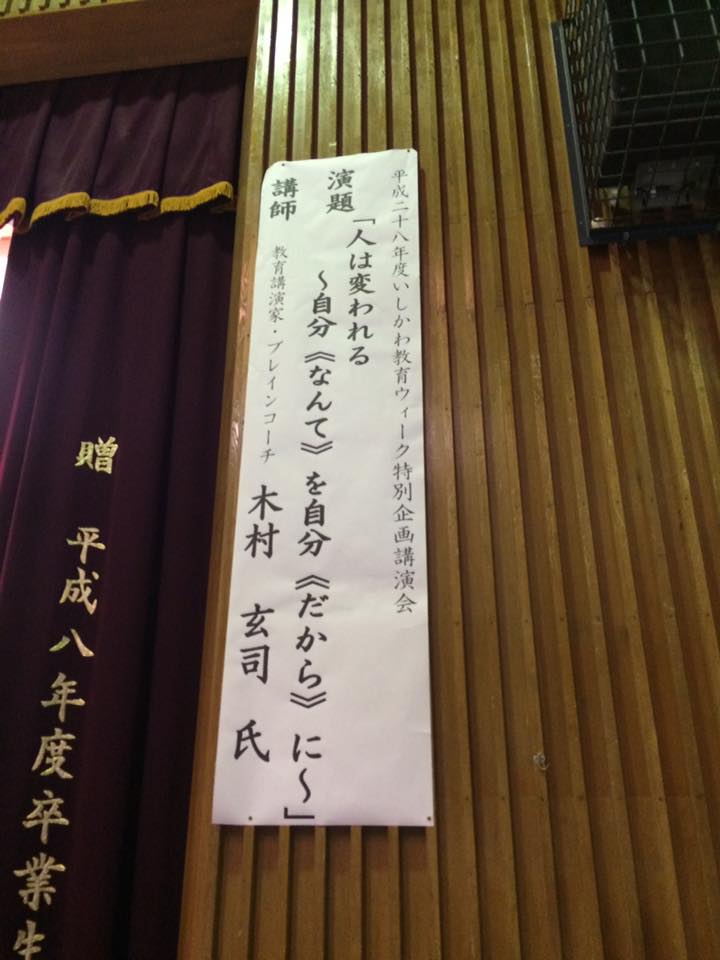 平成二十八年度いしかわ教育ウィーク特別企画講演会
演題「人は変われる
～自分《なんて》を自分《だから》に～」
講師 教育講演家・ブレインコーチ 木村 玄司 氏
贈 平成八年度卒業生